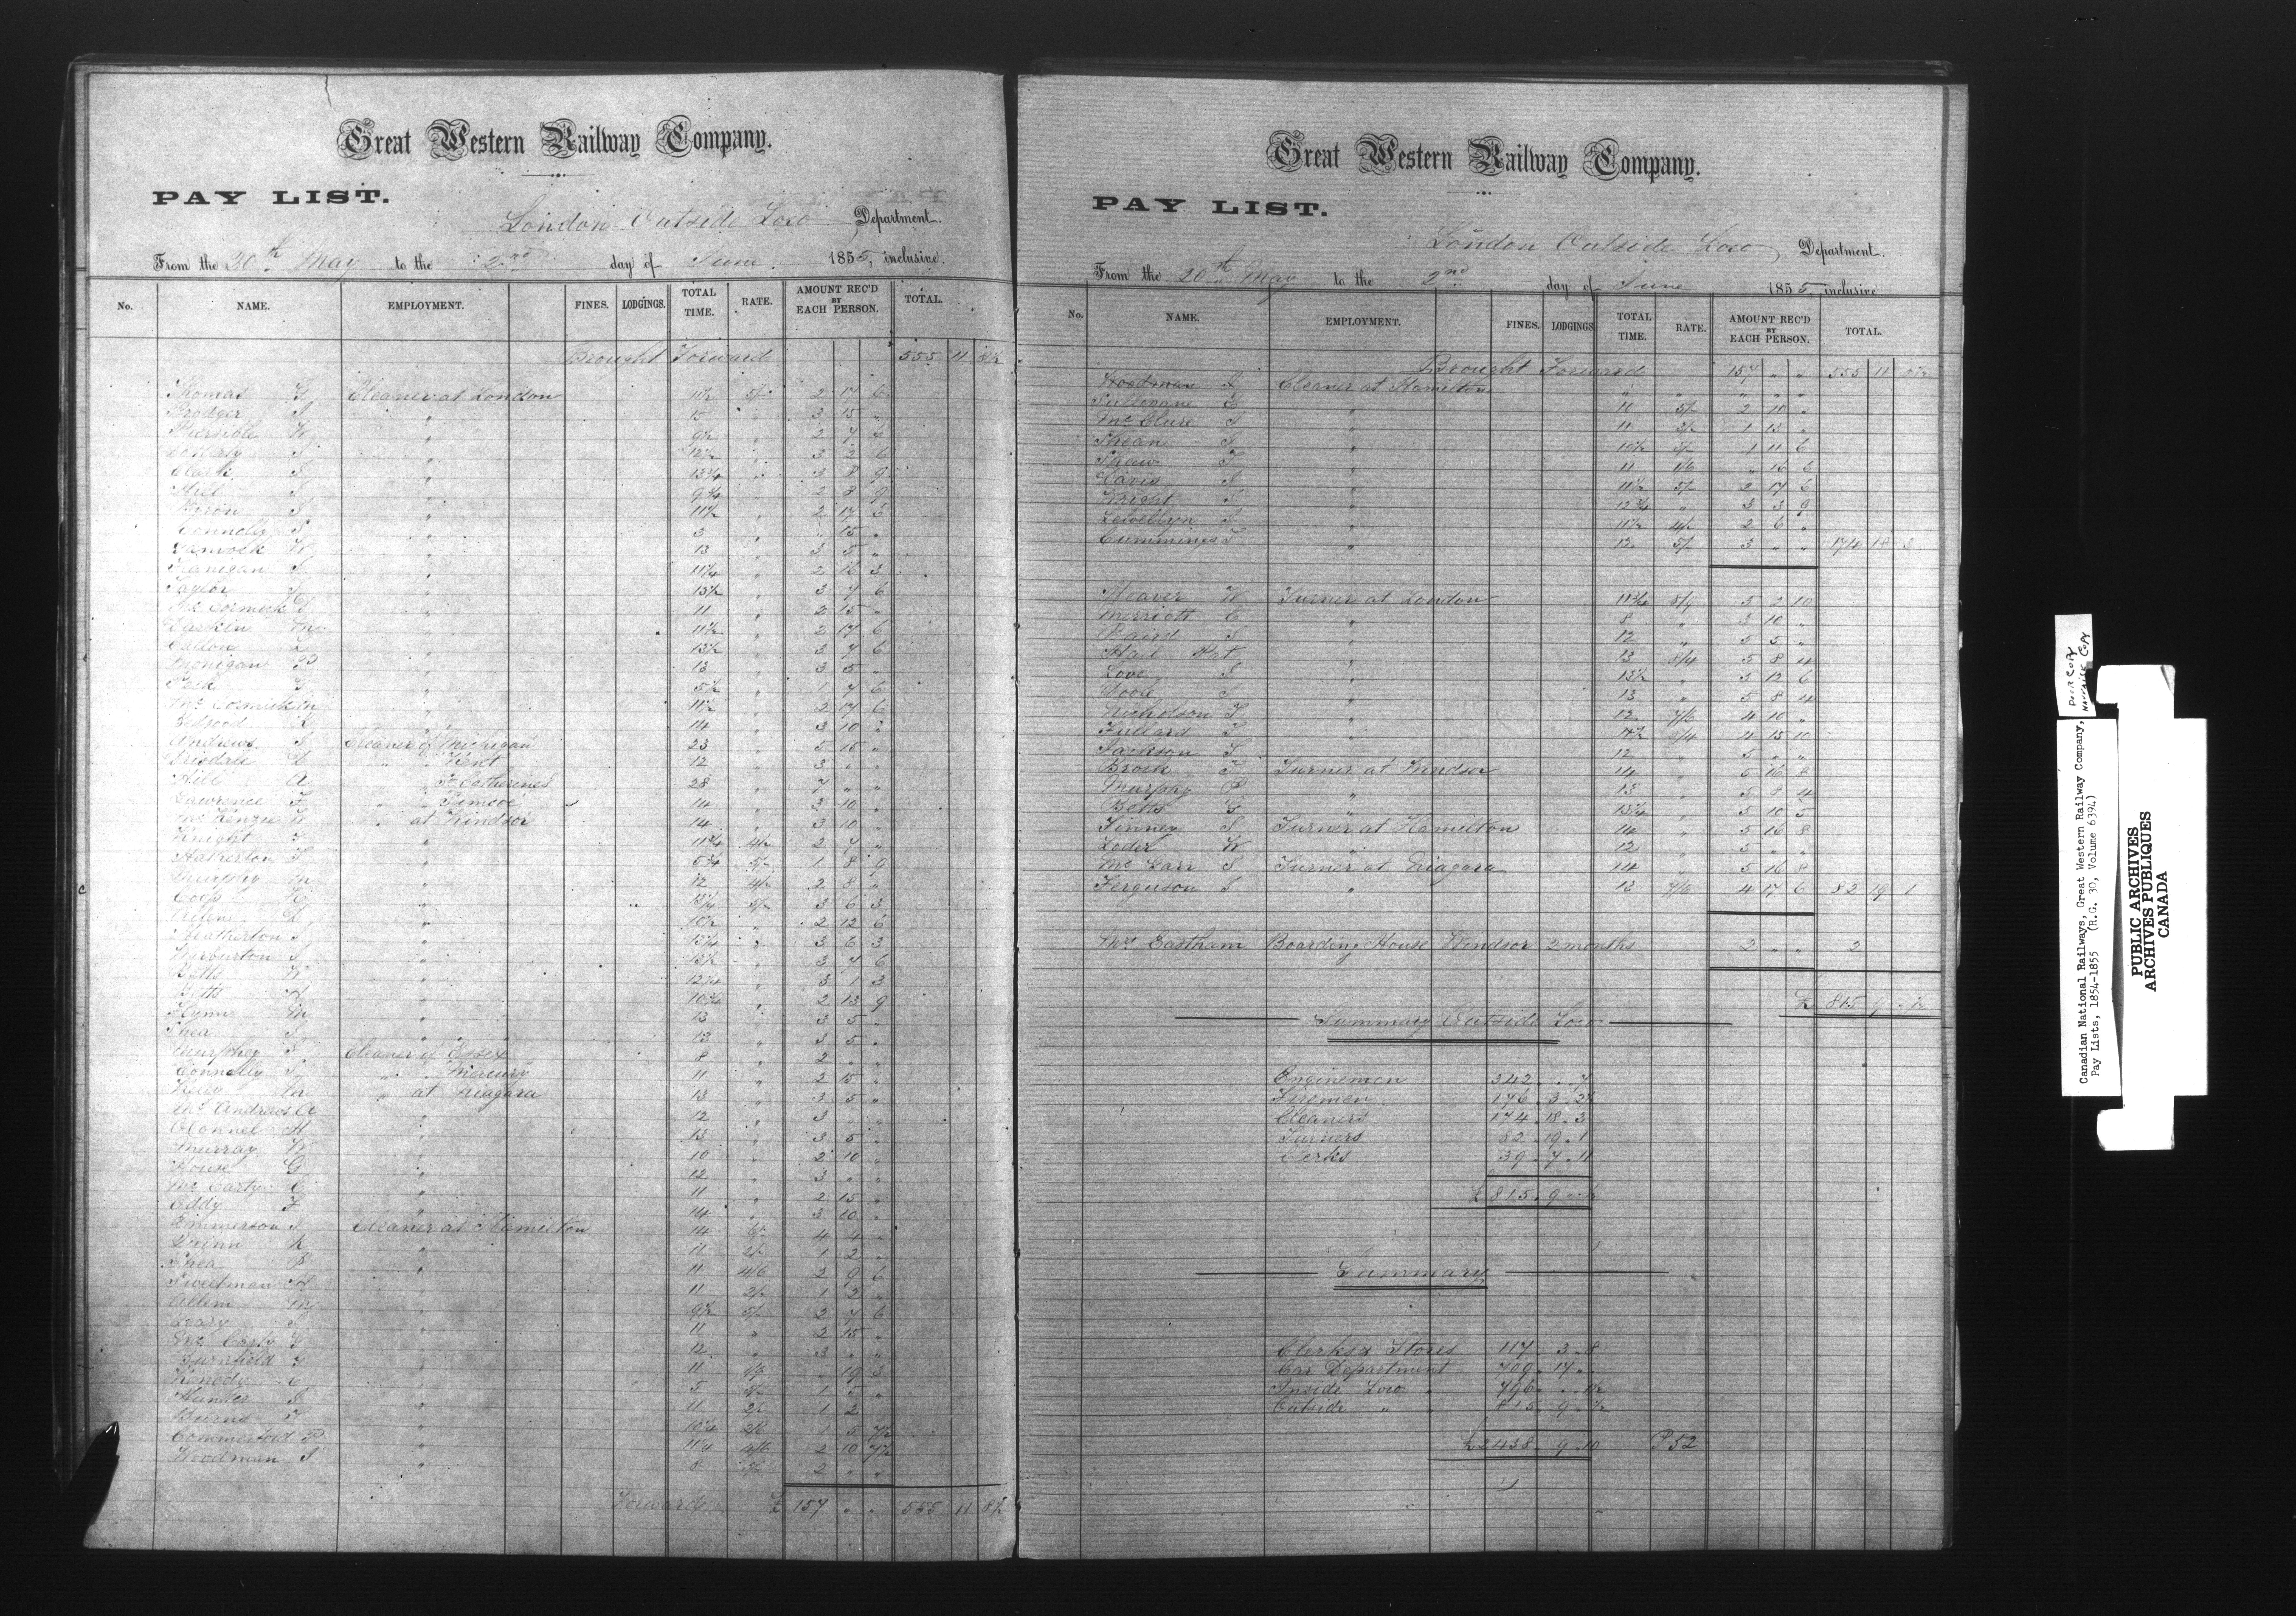 Great Western Railway Company.
PAY LIST.
London Outside Loco Department.
From the 20th May to the 2nd day of June 1855, inclusive.
No. NAME. EMPLOYMENT. FINES. LODGINGS. TOTAL TIME. RATE. AMOUNT REC'D BY EACH PERSON. TOTAL.
Brought Forward 555 11 8½
Thomas G Cleaner at London 11½ 5/- 2 17 6
Prodger J " 15 " 3 15 "
W " 9½ " 2 7 6
J " 12½ " 3 2 6
Clark J " 13¾ " 3 8 9
Hill J " 9¾ " 2 8 9
Byron J " 11½ " 2 17 6
Connolly S " 3 " " 15 "
W " 13 " 3 5 "
Flanigan J " 11¼ " 2 16 3
Taylor J " 13½ " 3 7 6
McCormick J " 11 " 2 15 "
Larkin M " 11½ " 2 17 6
" 13½ " 3 7 6
Monigan P " 13 " 3 5 "
" 5½ " 1 7 6
McCormick M " 11½ " 2 17 6
" 14 " 3 10 "
Andrews J Cleaner of Michigan 23 " 5 15 "
" " Kent 12 " 3 " "
Hill A " " St Catherines 28 " 7 " "
Lawrence F " " Simcoe 14 " 3 10 "
McKenzie W " at Windsor 14 " 3 10 "
Knight " 11¾ 4/- 2 7 "
Hatherton T " 5¾ 5/- 1 8 9
Murphy M " 12 4/- 2 8 "
" 13¼ 5/- 3 6 3
" 10½ " 2 12 6
Heatherton J " 13¼ " 3 6 3
Warburton J " 13½ " 3 7 6
Betts W " 12¼ " 3 1 3
Betts H " 10¾ " 2 13 9
Flynn M " 13 " 3 5 "
Shea J " 13 " 3 5 "
Murphy J Cleaner of Essex 8 " 2 " "
Connolly J " " Mercury 11 " 2 15 "
Riley M " at Niagara 13 " 3 5 "
McAndrews A " 12 " 3 " "
OConnel H " 13 " 3 5 "
Murray W " 10 " 2 10 "
House G " 12 " 3 " "
McCarty C " 11 " 2 15 "
Eddy F " 14 " 3 10 "
Emmerson J Cleaner at Hamilton 14 6/- 4 4 "
Quinn R " 11 2/- 1 2 "
Shea P " 11 4/6 2 9 6
Sweetman H " 11 2/- 1 2 "
Allem M " 9½ 5/- 2 7 6
Leary J " 11 " 2 15 "
McCarty " 12 " 3 " "
" 11 1/9 " 19 3
Kenedy C " 5 5/- 1 5 "
Hunter J " 11 2/- 1 2 "
Burns T " 10¼ 2/6 1 5 7½
Commerford P " 11¼ 4/6 2 10 7½
Woodman J " 8 5/- 2 " "
Forward £ 157 " " 555 11 8½
Great Western Railway Company.
PAY LIST.
London Outside Loco Department.
From the 20th May to the 2nd day of June 1855 inclusive
No. NAME. EMPLOYMENT. FINES. LODGINGS TOTAL TIME. RATE. AMOUNT REC'D BY EACH PERSON. TOTAL.
Brought Forward 157 " " 555 11 8½
Woodman J Cleaner at Hamilton " " " " "
Sullivane E " 10 5/- 2 10 "
McClure J " 11 3/- 1 13 "
Shean J " 10½ 3/- 1 11 6
Shaw T " 11 1/6 " 16 6
Davis S " 11½ 5/- 2 17 6
Wright J " 12¾ " 3 3 9
Lewellyn J " 11½ 4/- 2 6 "
Cummings T " 12 5/- 3 " " 174 18 3
Weaver W Turner at London 11¾ 8/9 5 2 10
Merriott C " 8 " 3 10 "
Baird J " 12 " 5 5 "
Hail Pat " 13 8/4 5 8 4
Love S " 13½ " 5 12 6
Poole J " 13 " 5 8 4
Nicholson T " 12 7/6 4 10 "
Fullard T " 11½ 8/4 4 15 10
Jackson T " 12 " 5 " "
Brock T Turner at Windsor 14 " 5 16 8
Murphy P " 13 " 5 8 4
Betts G " 13¼ " 5 10 5
Finney S Turner at Hamilton 14 " 5 16 8
Loder W " 12 " 5 " "
McCarr S Turner at Niagara 14 " 5 16 8
Ferguson S " 13 7/6 4 17 6 82 19 1
Mrs Eastham Boarding House Windsor 2 months 2 " " 2
£ 815 9 " ½
Summary Outside Loco
Enginemen 342 " 7
Firemen 176 3 2½
Cleaners 174 18 3
Turners 82 19 1
Clerks 39 7 11
£ 815 9 " ½
Summary
Clerks & Stores 117 3 8
Car Department 709 17 "
Inside Loco " 796 " 1½
Outside " " 815 9 ½
£2438 9 10 P 52
POOR COPY
MAUVAISE COPY
Canadian National Railways, Great Western Railway Company,
Pay Lists, 1854-1855 (R.G. 30, Volume 6394)
PUBLIC ARCHIVES
ARCHIVES PUBLIQUES
CANADA